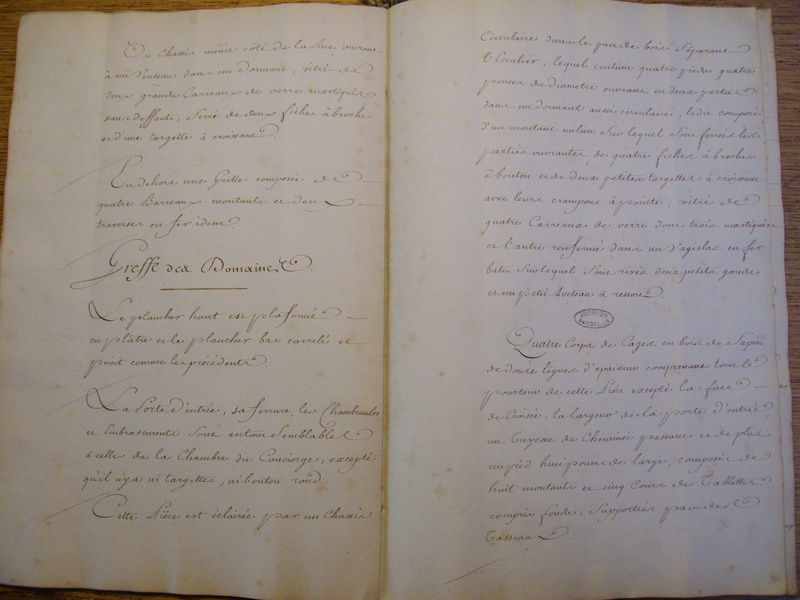 Un chassis même côté de la Rue ouvrant
à un Venteau dans un dormant, vitré de
deux grands Carreaux de verre mastiqués
sans deffauts, ferré de deux fiches à broche
et d'une targette à croissant.
En dehors une Grille composée de
quatre Barreaux montants et deux
traverses en fer idem.
Greffe des Domaines.
Le plancher haut est plafonné
en plâtre et le plancher bas carrelé et
peint comme les précédents.
La Porte d'entrée, sa ferrure, les Chambranles
et Embrasements sont en tout Semblables
à celle de la Chambre du Concierge, excepté
qu'il n'y a ni targette, ni bouton rond.
Cette Pièce est éclairée par un Chassis
Circulaire dans le pan de bois Séparant
l'Escalier, lequel contient quatre pieds quatre
pouces de diametre ouvrant en deux parties
dans un dormant aussi circulaire, ledit composé
d'un montant milieu Sur lequel Sont ferrées les
parties ouvrantes de quatre fiches à broche
à bouton et de deux petites targettes à croissant
avec leurs crampons à pointe, vitré de
quatre Carreaux de verre dont trois mastiqués
et l'autre renfermé dans un Vagistas en fer
batu Sur lequel Sont rivés deux petits gonds
et un petit Locteau à ressort.
ARCHIVES
Quatre Corps de Cazes en bois de Sapin
de douze lignes d'épaisseur comprenant tout le
pourtour de cette Pièce excepté la face
de Croisée, la largeur de la porte d'entrée
un Tuyeau de Cheminée passant et de plus
un pied huit pouces de large, composées de
huit montants et cinq Cours de Tablettes
compris fonds, Supportées par des
Tasseaux.